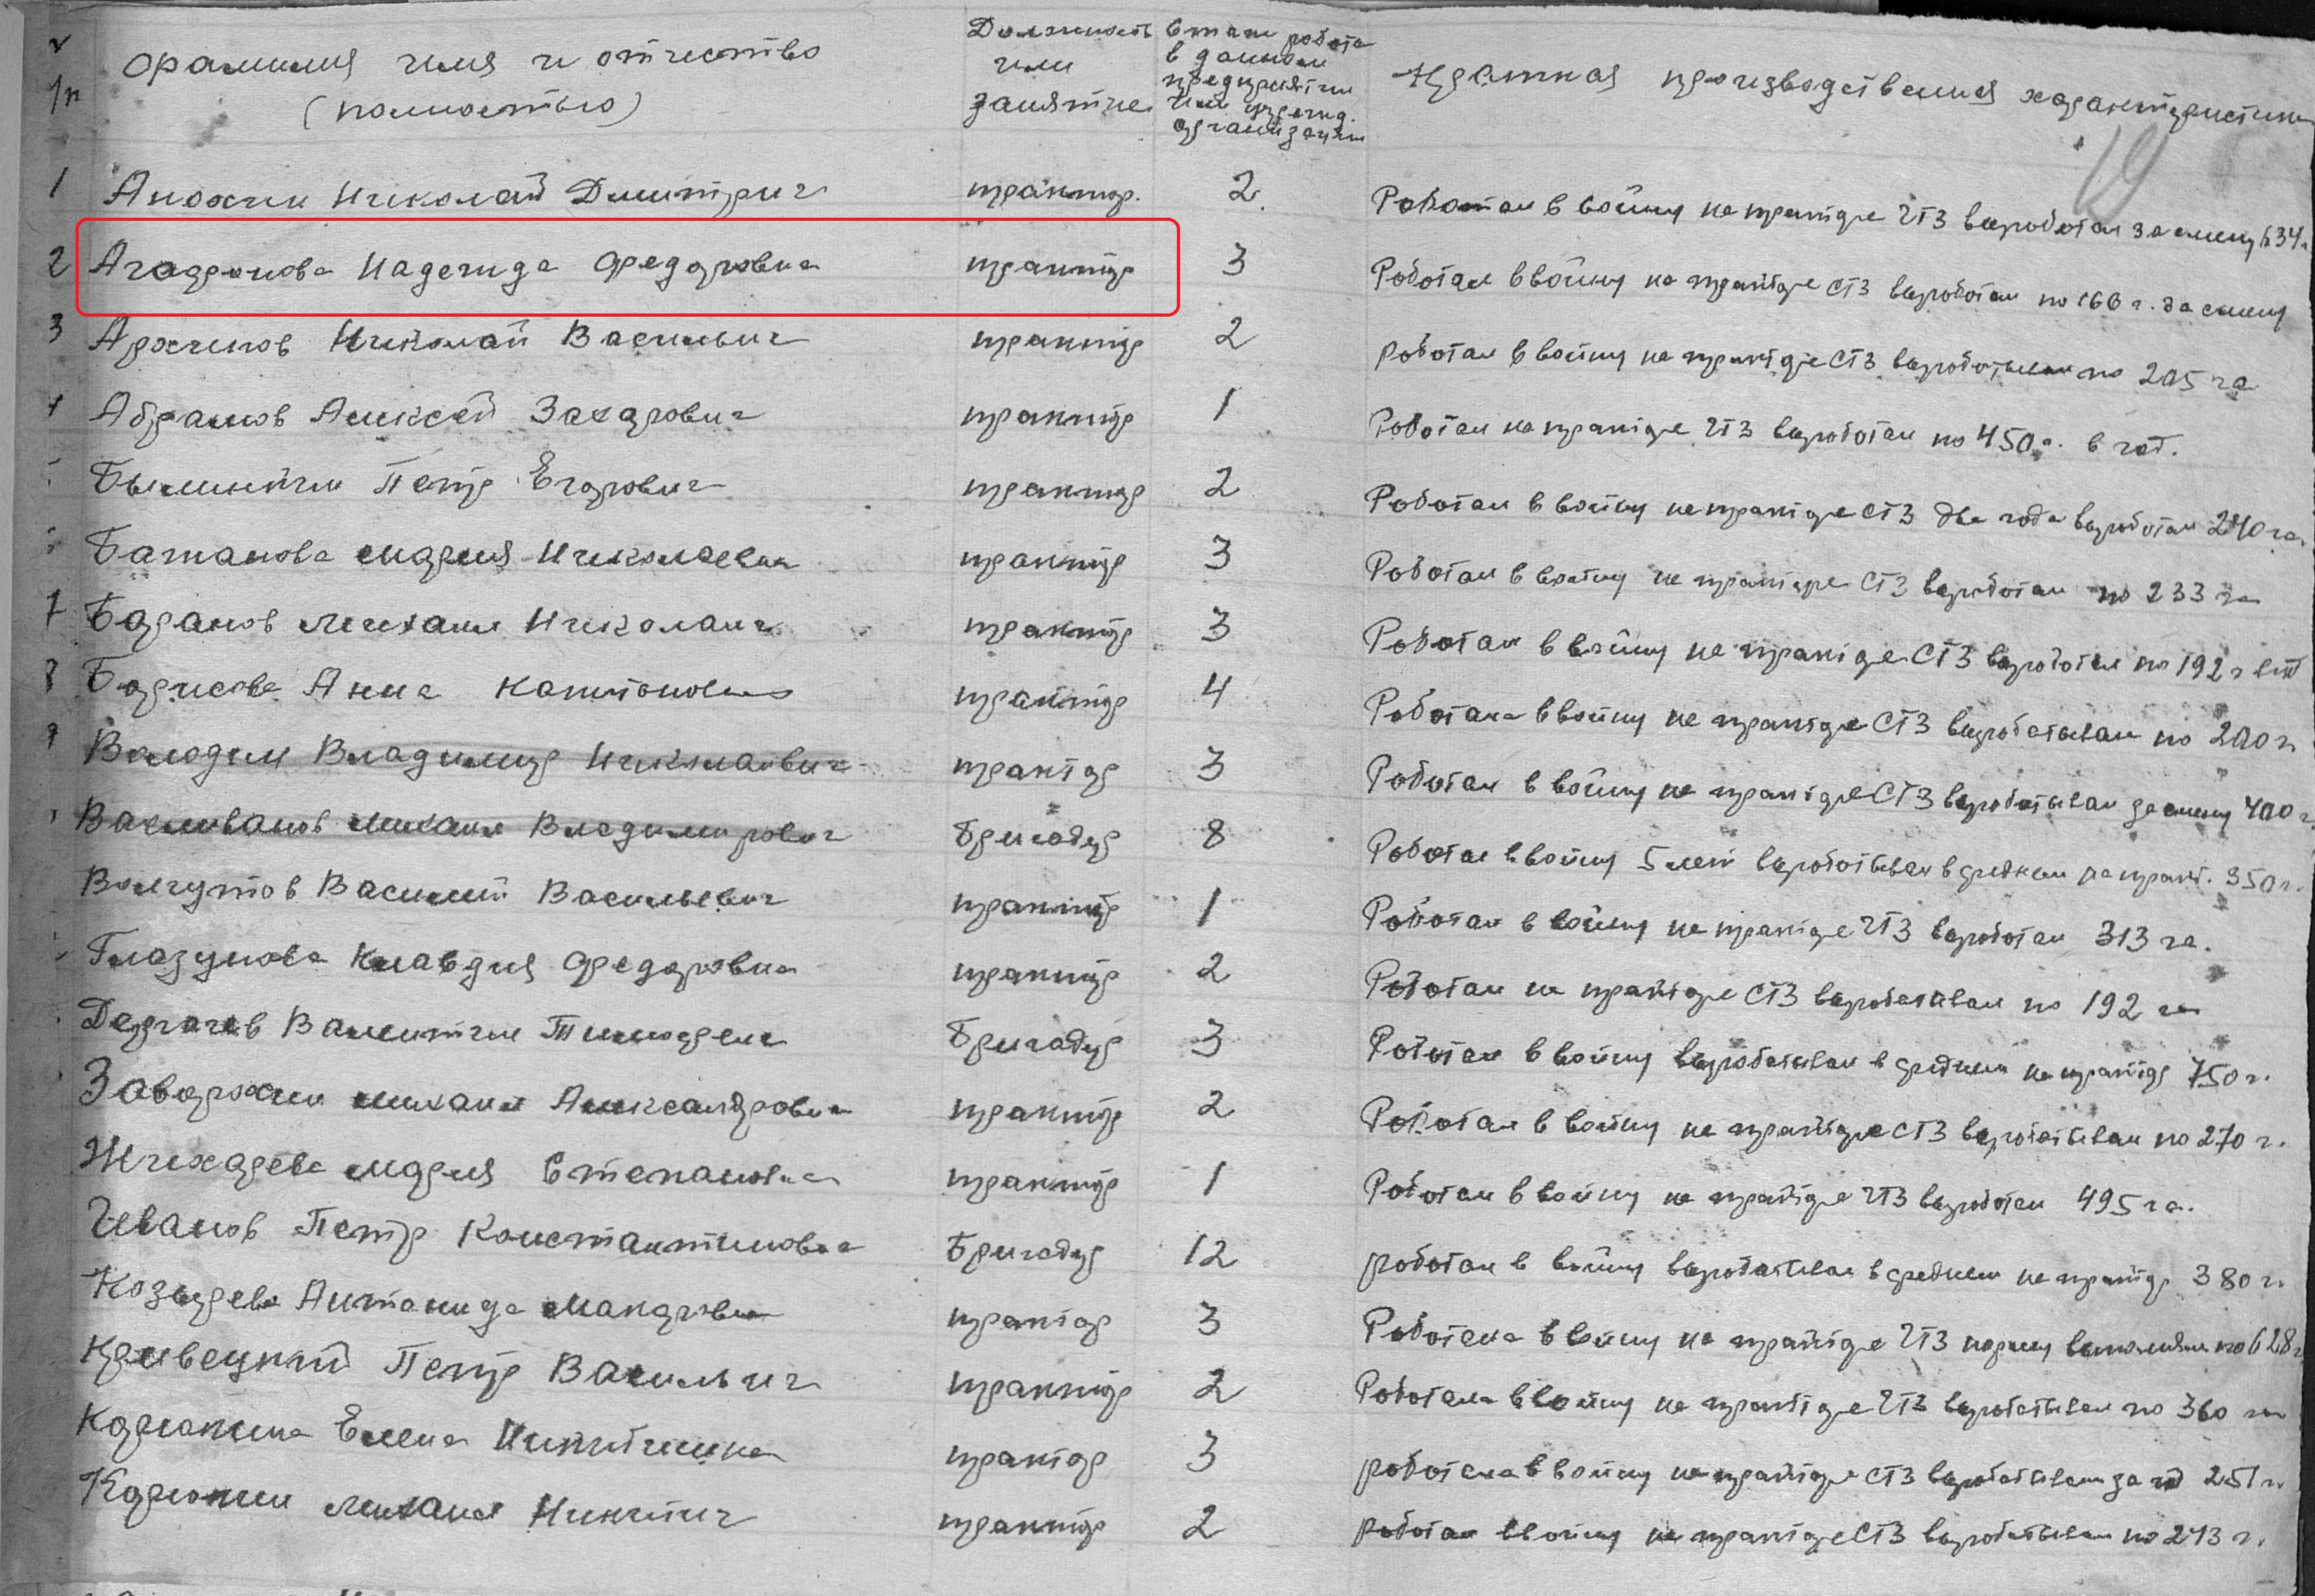 фамилия имя и отчество
(полностью)
Должность
или
занятие
Стаж работа
в данном
предприятии
или учрежд.
организации
Краткая производственная характеристика
19
1 Анохин Николай Дмитрич трактор. 2. Работал в войну на тракторе ЧТЗ выработал за смену 634
2 Агафонова Надежда Федоровна трактор 3 Работал в войну на тракторе СТЗ выработал по 166 г. за смену
3 Архипов Николай Василич трактор 2 работал в войну на тракторе СТЗ выработывал по 205 га
4 Абрамов Алексей Захарович трактор 1 Работал на тракторе ЧТЗ выработал по 450 г. в год.
Петр Егорович трактор 2 Работал в войну на тракторе СТЗ два года выработал 240 га.
Батанова Мария Николаевна трактор 3 Работал в войну на тракторе СТЗ выработал по 233 га
7 Баранов Михаил Николаич трактор 3 Работал в войну на тракторе СТЗ выработал по 192 г
8 Борисова Анна Капитоновна трактор 4 Работала в войну на тракторе СТЗ выработывал по 200 г.
9 Володин Владимир Николаевич трактор 3 Работал в войну на тракторе СТЗ выработывал за смену 400 г
Михаил Владимирович Бригадир 8 Работал в войну 5 лет выработывал в среднем на тракт. 350 г.
Волгутов Василий Васильевич трактор 1 Работал в войну на тракторе ЧТЗ выработал 313 га.
Глазунова Клавдия Федоровна трактор 2 Работал на тракторе СТЗ выработывал по 192 га
Дергачев Валентин Бригадир 3 Работал в войну выработывал в среднем на трактор 750 г.
Заворохин Михаил Александрович трактор 2 Работал в войну на тракторе СТЗ выработывал по 270 г.
Жихарева Мария Степановна трактор 1 Работал в войну на тракторе ЧТЗ выработал 495 га.
Иванов Петр Константинович Бригадир 12 работал в войну выработывал в среднем на трактор 380 г.
Козырева Антанида Макаровна трактор 3 Работала в войну на тракторе ЧТЗ норму выполняла по 628 г
Кривецкий Петр Василич трактор 2 Работала в войну на тракторе ЧТЗ выработывал по 360 га
Корюкина Елена Никитична трактор 3 работала в войну на тракторе СТЗ выработывал за год 251 г.
Корюкин Михаил Никитич трактор 2 работал в войну на тракторе СТЗ выработывал по 243 г.